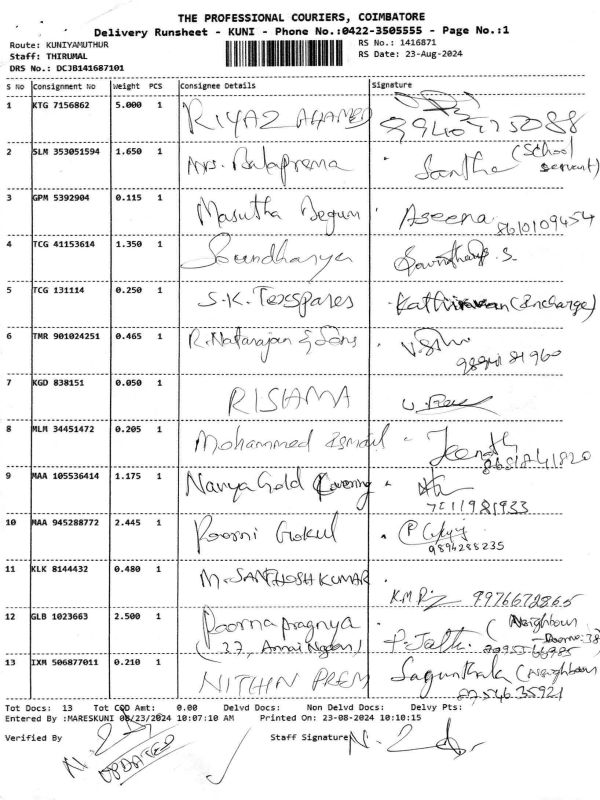 THE PROFESSIONAL COURIERS, COIMBATORE
Delivery Runsheet - KUNI - Phone No.:0422-3505555 - Page No.:1
Route: KUNIYAMUTHUR
RS No.: 1416871
Staff: THIRUMAL
RS Date: 23-Aug-2024
DRS No.: DCJB141687101
S No Consignment No Weight PCS Consignee Details Signature
1 KTG 7156862 5.000 1 RIYAZ AHAMED
2 SLM 353051594 1.650 1 Mrs. Balaprema Santha (School servant)
3 GPM 5392904 0.115 1 Masutha Begum Aseena 8610109454
4 TCG 41153614 1.350 1 Soundharya
5 TCG 131114 0.250 1 S.K. Texspares Kathiravan (Incharge)
6 TMR 901024251 0.465 1 R. Natarajan & Sons
7 KGD 838151 0.050 1 RISHAMA
8 MLM 34451472 0.205 1 Mohammed Ismail
9 MAA 105536414 1.175 1 Navya Gold Covering
10 MAA 945288772 2.445 1 Poorni Gokul 9894288235
11 KLK 8144432 0.480 1 M. SANTHOSH KUMAR 9976672865
12 GLB 1023663 2.500 1 Poorna pragnya (Neighbour
13 IXM 506877011 0.210 1 NITHIN PREM (Neighbour
Tot Docs: 13 Tot COD Amt: 0.00 Delvd Docs: Non Delvd Docs: Delvy Pts:
Entered By :MARESKUNI 08/23/2024 10:07:10 AM Printed On: 23-08-2024 10:10:15
Verified By Staff Signature
UPDATED